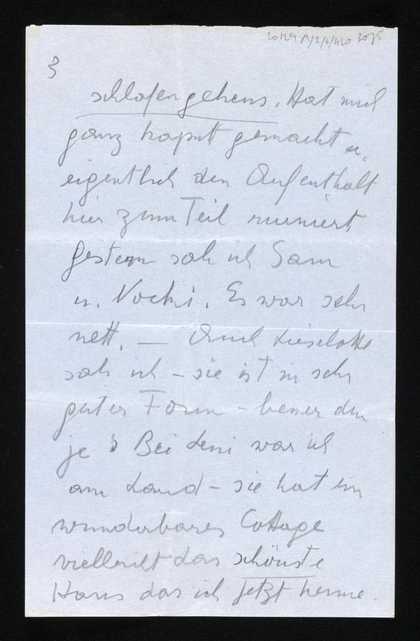 3
schlafengehens. Hat mich
ganz kaputt gemacht u.
eigentlich den Aufenthalt
hier zum Teil ruiniert
gestern sah ich Sam
u. Nochi. Es war sehr
nett. — Auch Lieselotte
sah ich – sie ist in sehr
guter Form – besser denn
je Bei Leni war ich
am Land – sie hat ein
wunderbares Cottage
vielleicht das schönste
Haus das ich jetzt kenne.